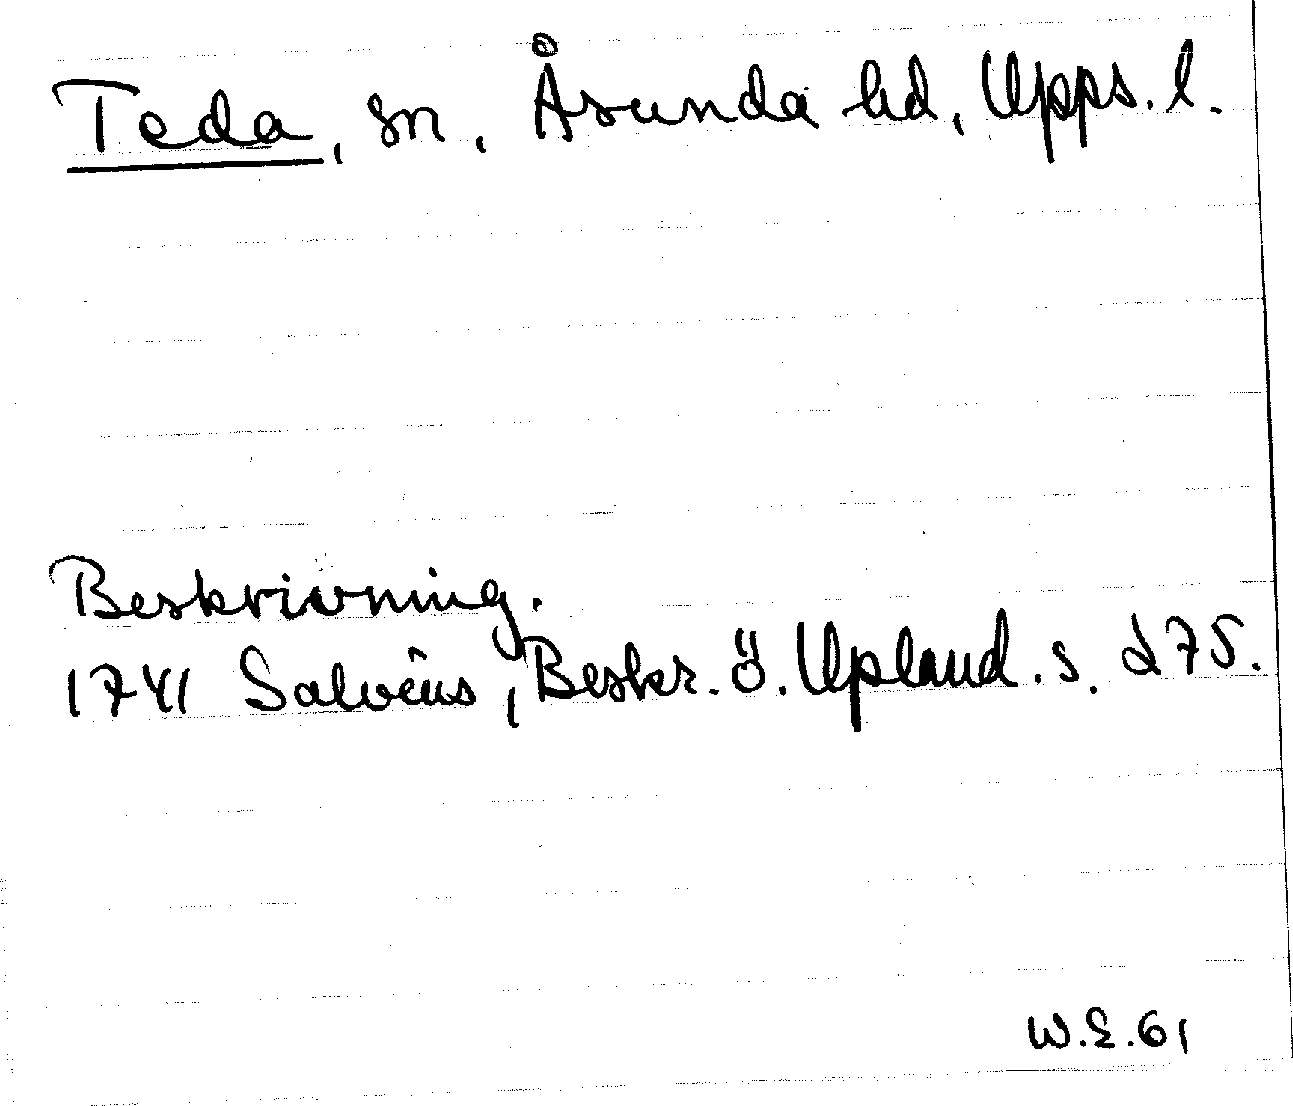 Teda, sn, Åsunda hd, Upps. l.
Beskrivning.
1741 Salvius, Beskr. ö. Upland. s. 275.
W.E.61